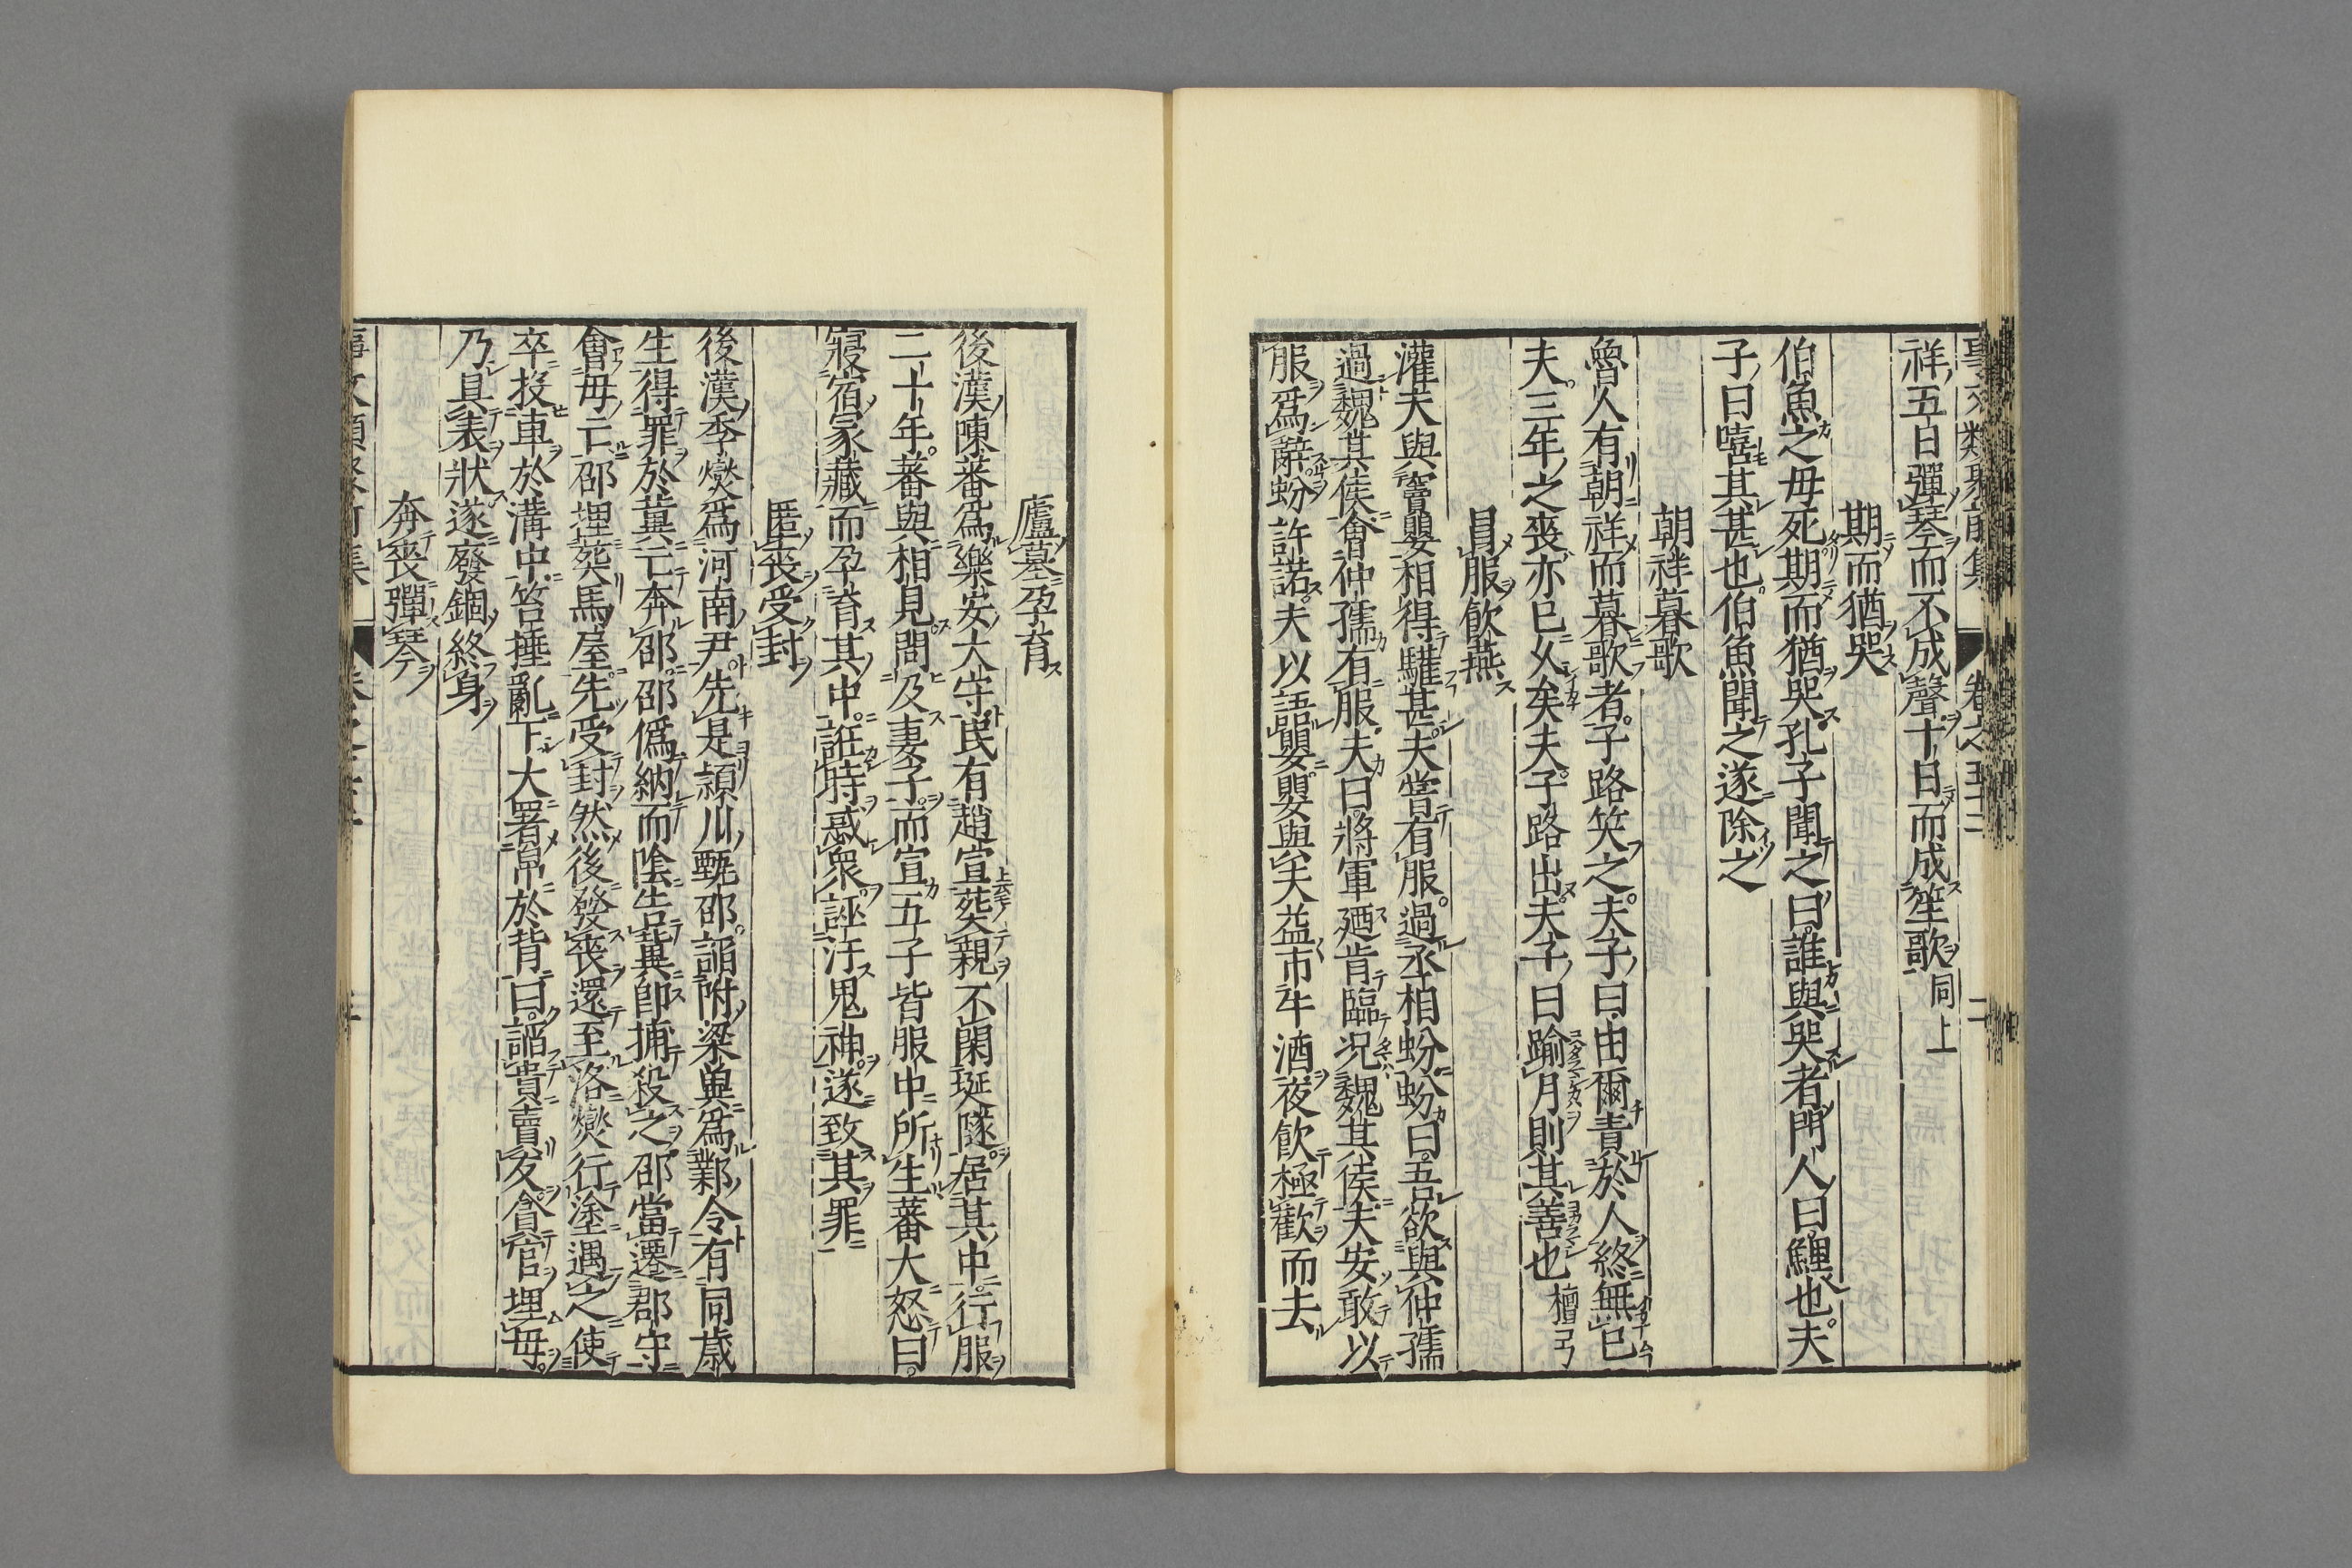 事文類聚前集 卷之五十二 二
祥五日彈琴而不成聲十日而成笙歌同上
期而猶哭
伯魚之毋死期而猶哭孔子聞之曰誰與哭者門人曰鯉也夫
子曰嘻其甚也伯魚聞之遂除之
朝祥暮歌
魯人有朝祥而暮歌者子路笑之夫子曰由爾責於人終無已
夫三年之喪亦已久矣夫子路出夫子曰踰月則其善也檀弓
冒服飲燕
灌夫與竇嬰相得驩甚夫嘗有服過丞相蚡蚡曰吾欲與仲孺
過魏其侯會仲孺有服夫曰將軍廼肯臨况魏其侯夫安敢以
服爲辭蚡許諾夫以語嬰嬰與夫益市牛酒夜飲極歡而去
廬墓孕育
後漢陳蕃爲樂安大守民有趙宣葬親不閉埏隧居其中行服
二十年蕃與相見問及妻子而宣五子皆服中所生蕃大怒曰
寢宿冢藏而孕育其中誑時惑衆誣汙鬼神遂致其罪
匿喪受封
後漢季爕爲河南尹先是潁川甄邵謟附梁兾爲鄴令有同歳
生得罪於兾亡奔邵邵僞納而陰告兾卽捕殺之邵當遷郡守
會毋亡邵埋葬馬屋先受封然後發喪還至洛爕行塗遇之使
卒投車於溝中笞捶亂下大署帛於背曰謟貴賣友貪官埋毋
乃具表狀遂廢錮終身
奔喪彈琴